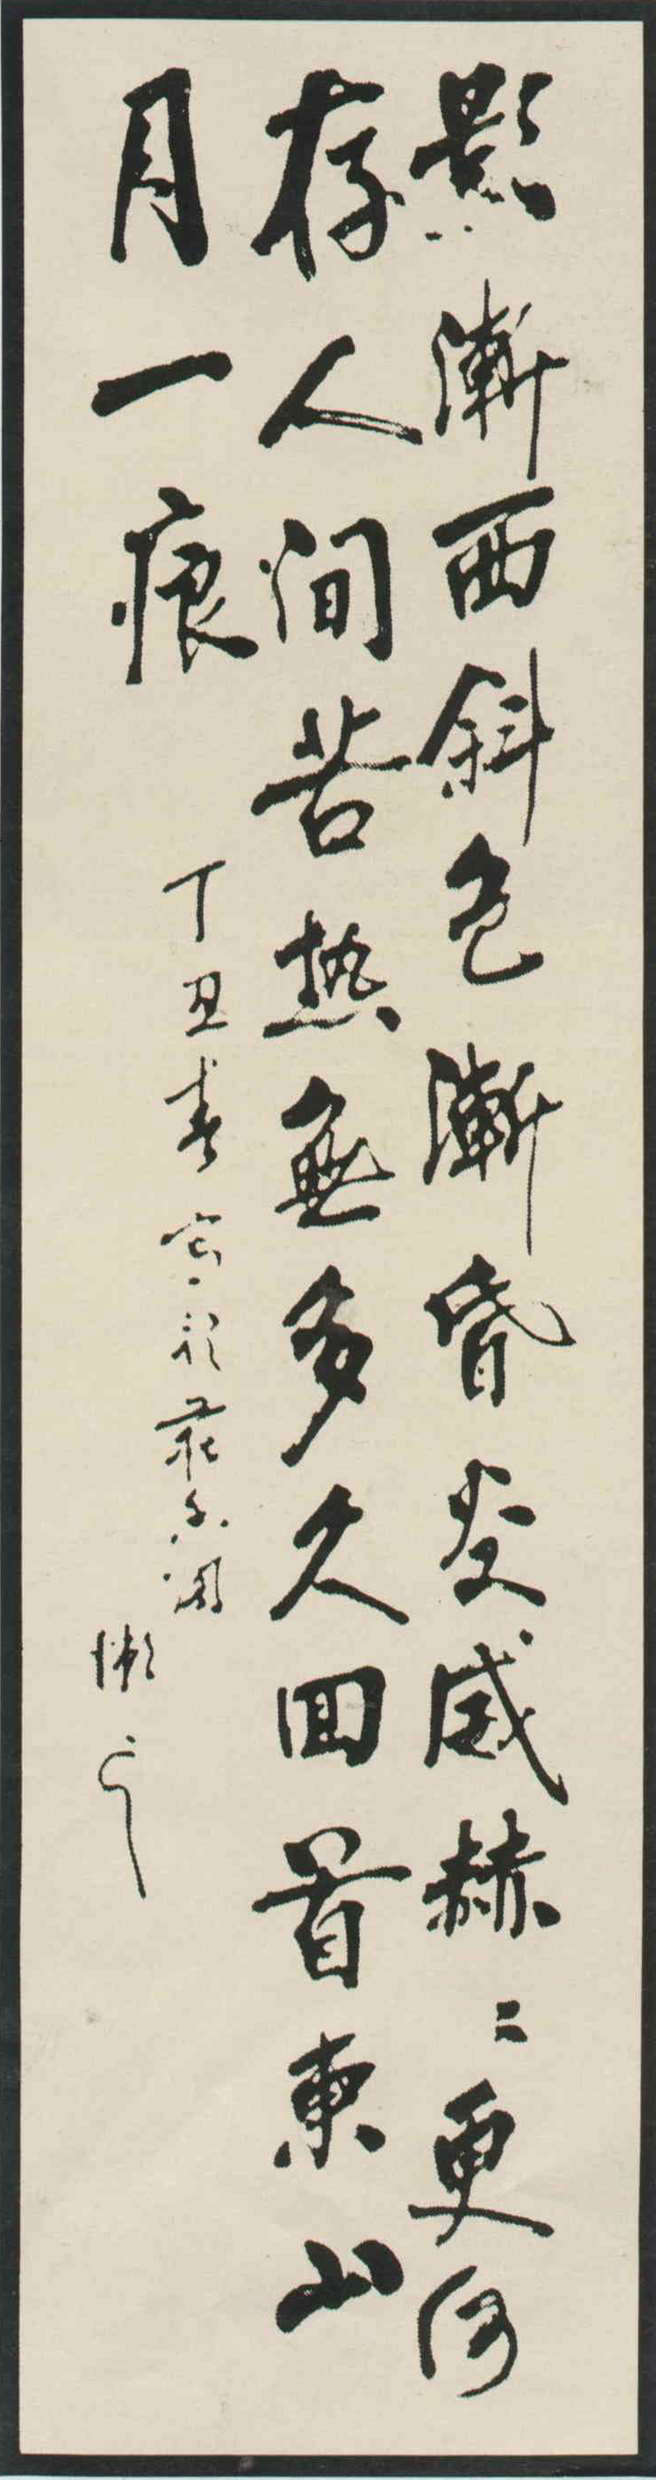 影漸西斜色漸昏炎威赫〻更何
存人间苦热無多久回首東山
月一痕
丁丑春